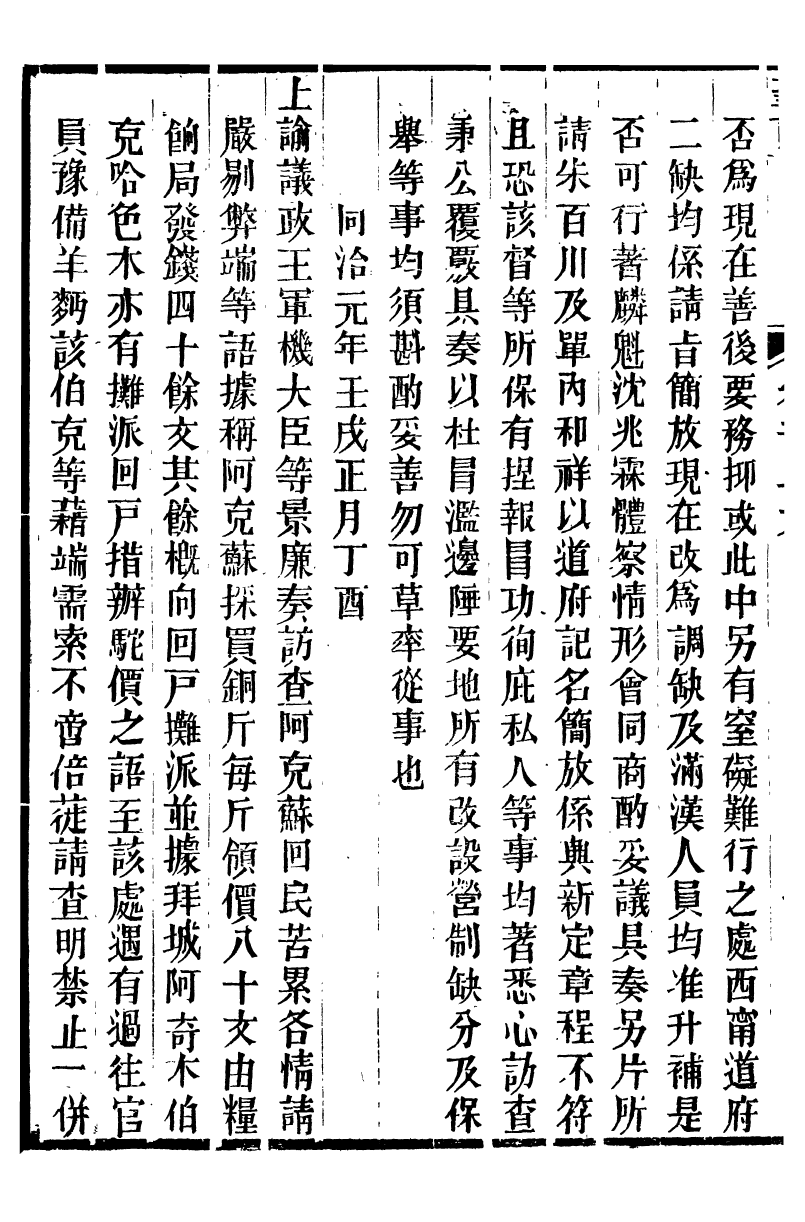 否爲現在善後要務抑或此中另有窒礙難行之處西甯道府
二缺均係請旨簡放現在改爲調缺及滿漢人員均准升補是
否可行著麟魁沈兆霖體察情形會同商酌妥議具奏另片所
請朱百川及單內和祥以道府記名簡放係與新定章程不符
且恐該督等所保有捏報冒功徇庇私人等事均著悉心訪查
秉公覆覈具奏以杜冒濫邊陲要地所有改設營制缺分及保
舉等事均須斟酌妥善勿可草率從事也
同治元年壬戌正月丁酉
上諭議政王軍機大臣等景廉奏訪查阿克蘇回民苦累各情請
嚴剔弊端等語據稱阿克蘇採買銅斤每斤領價八十文由糧
餉局發錢四十餘文其餘槪向回戶攤派並據拜城阿奇木伯
克哈色木亦有攤派回戶措辦駝價之語至該處遇有過往官
員豫備羊麪該伯克等藉端需索不啻倍蓰請查明禁止一併